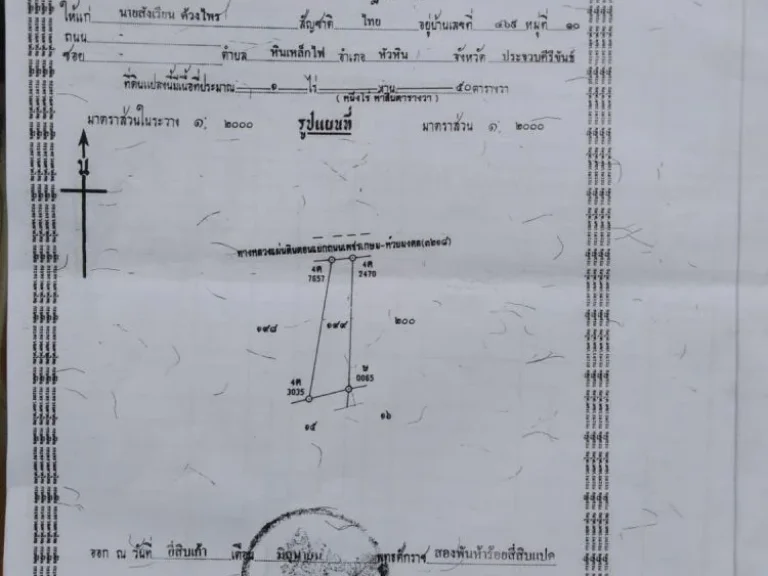 ให้แก่ นายสังเวียน ด้วงไพร สัญชาติ ไทย อยู่บ้านเลขที่ ๔๖๕ หมู่ที่ ๑๐
ถนน -
ซอย - ตำบล หินเหล็กไฟ อำเภอ หัวหิน จังหวัด ประจวบคีรีขันธ์
ที่ดินแปลงนี้มีเนื้อที่ประมาณ ๑ ไร่ - งาน ๕๐ ตารางวา
( หนึ่งไร่ ห้าสิบตารางวา )
มาตราส่วนในระวาง ๑: ๒๐๐๐ รูปแผนที่ มาตราส่วน ๑: ๒๐๐๐
น
ทางหลวงแผ่นดินตอนแยกถนนเพชรเกษม-ห้วยมงคล(๓๒๑๘)
4ต 4ต
7057 2470
๑๙๘ ๑๙๙ ๒๐๐
4ต ษ
3035 0065
๑๕ ๑๖
ออก ณ วันที่ ยี่สิบเก้า เดือน มิถุนายน พุทธศักราช สองพันห้าร้อยสี่สิบแปด